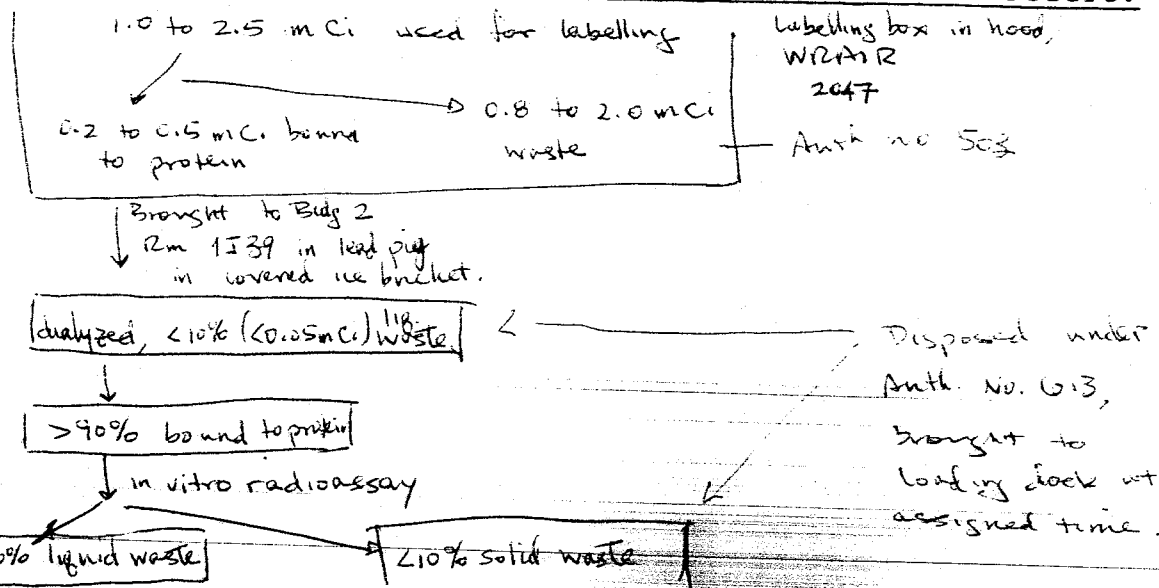 1.0 to 2.5 mCi used for labelling
Labelling box in hood,
WRAIR
2047
0.2 to 0.5 mCi bound
to protein
0.8 to 2.0 mCi
waste
Auth no 503
Brought to Bldg 2
Rm 1J39 in lead pig
in covered ice bucket.
dialyzed, <10% (<0.05mCi) liq. waste
Disposed under
Auth. No. 613,
brought to
loading dock at
assigned time.
>90% bound to protein
in vitro radioassay
0% liquid waste
<10% solid waste